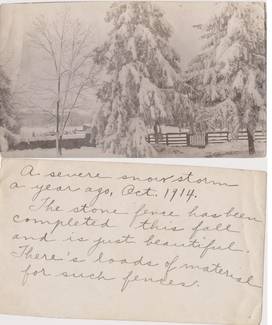 A severe snow storm
a year ago, Oct. 1914.
The stone fence has been
completed this fall
and is just beautiful.
There's loads of material
for such fences.